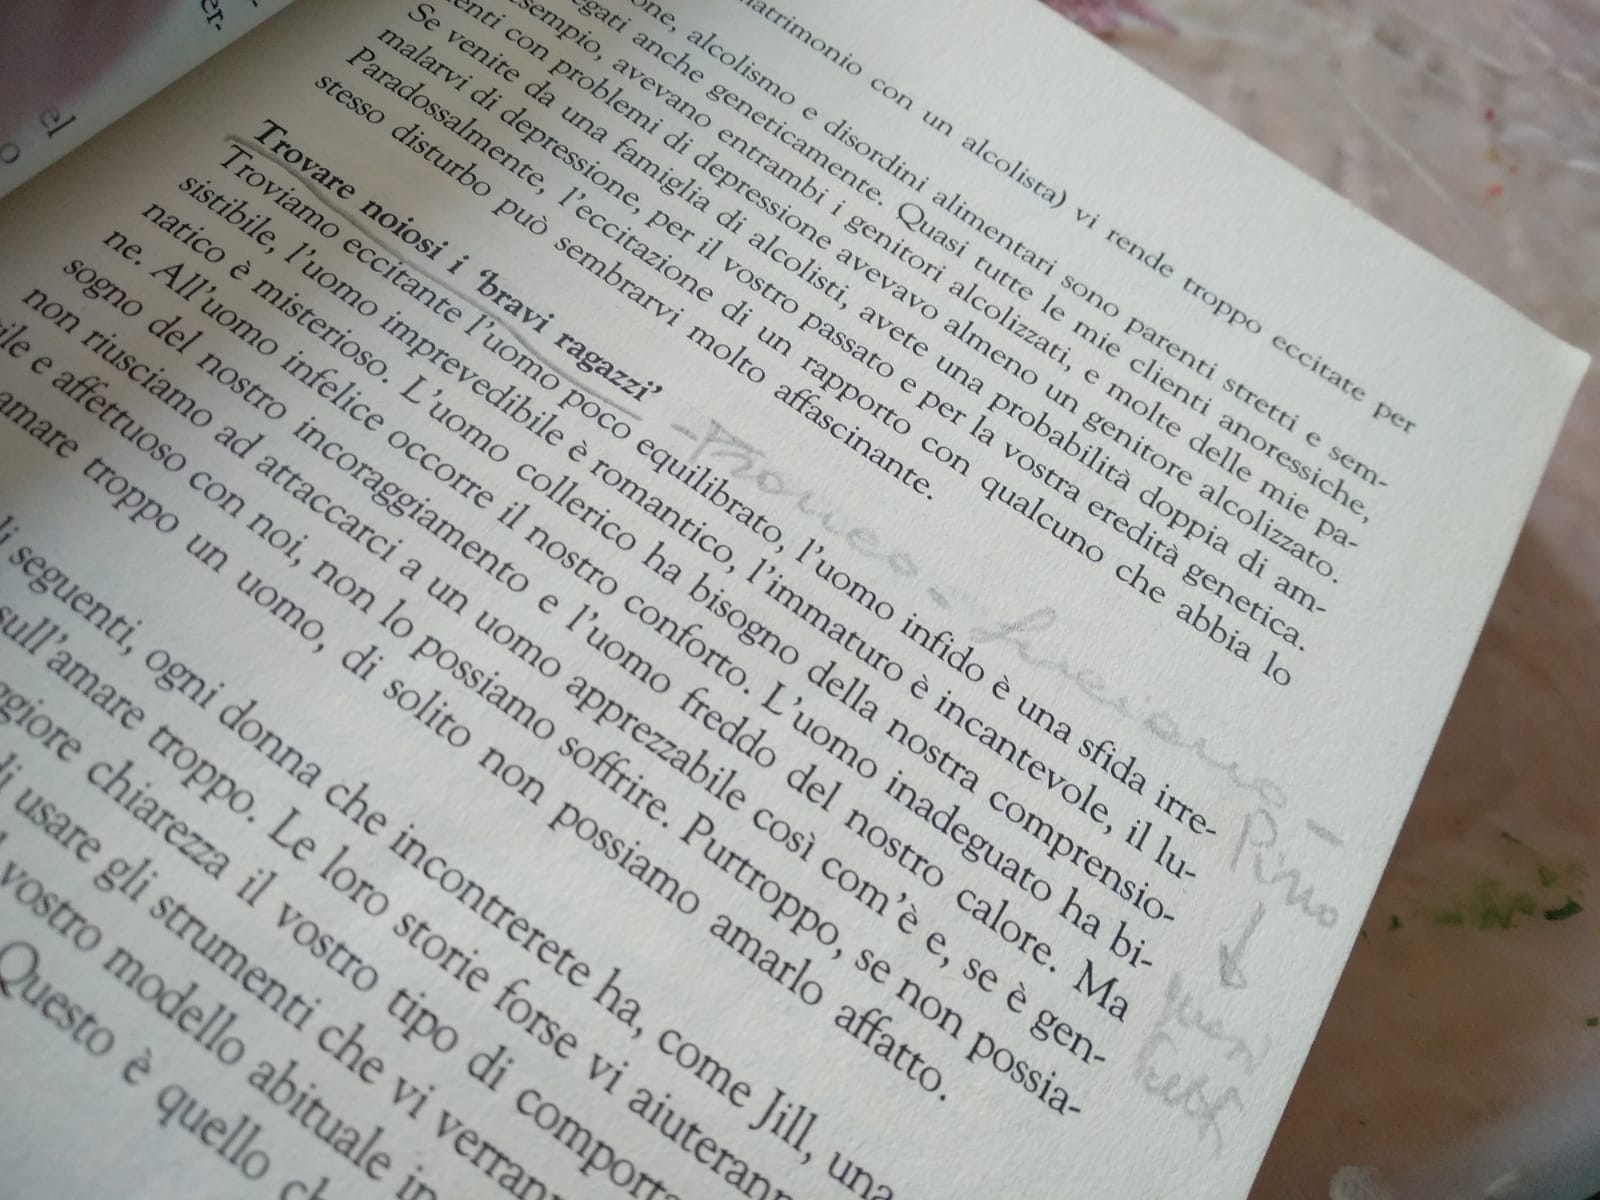 er-
el
o
matrimonio con un alcolista) vi rende troppo eccitate per
one, alcolismo e disordini alimentari sono parenti stretti e sem-
egati anche geneticamente. Quasi tutte le mie clienti anoressiche,
esempio, avevano entrambi i genitori alcolizzati, e molte delle mie pa-
ienti con problemi di depressione avevavo almeno un genitore alcolizzato.
Se venite da una famiglia di alcolisti, avete una probabilità doppia di am-
malarvi di depressione, per il vostro passato e per la vostra eredità genetica.
Paradossalmente, l'eccitazione di un rapporto con qualcuno che abbia lo
stesso disturbo può sembrarvi molto affascinante.
Trovare noiosi i 'bravi ragazzi'
Troviamo eccitante l'uomo poco equilibrato, l'uomo infido è una sfida irre-
sistibile, l'uomo imprevedibile è romantico, l'immaturo è incantevole, il lu-
natico è misterioso. L'uomo collerico ha bisogno della nostra comprensio-
ne. All'uomo infelice occorre il nostro conforto. L'uomo inadeguato ha bi-
sogno del nostro incoraggiamento e l'uomo freddo del nostro calore. Ma
non riusciamo ad attaccarci a un uomo apprezzabile così com'è e, se è gen-
tile e affettuoso con noi, non lo possiamo soffrire. Purtroppo, se non possia-
amare troppo un uomo, di solito non possiamo amarlo affatto.
li seguenti, ogni donna che incontrerete ha, come Jill, una
sull'amare troppo. Le loro storie forse vi aiuterann
ggiore chiarezza il vostro tipo di comporta
di usare gli strumenti che vi verrann
l vostro modello abituale in
Questo è quello ch
- Luciano -
Pino